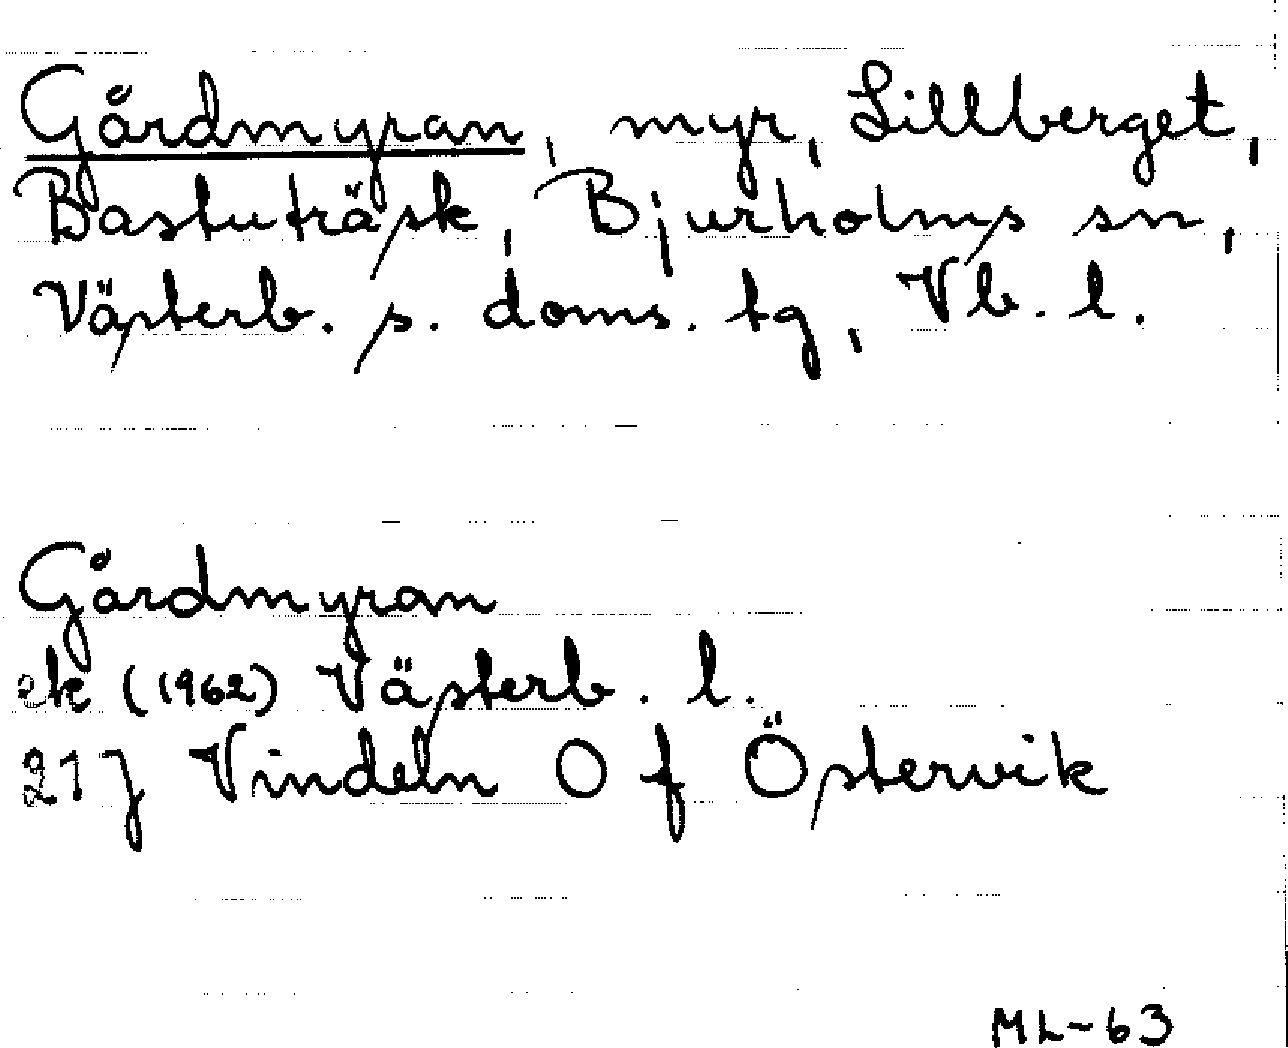 Gårdmyran, myr, Lillberget,
Bastuträsk, Bjurholms sn,
Västerb. s. doms. tg, Vb. l.
Gårdmyran
ek (1962) Västerb. l.
21 J Vindeln O f Östervik
ML-63